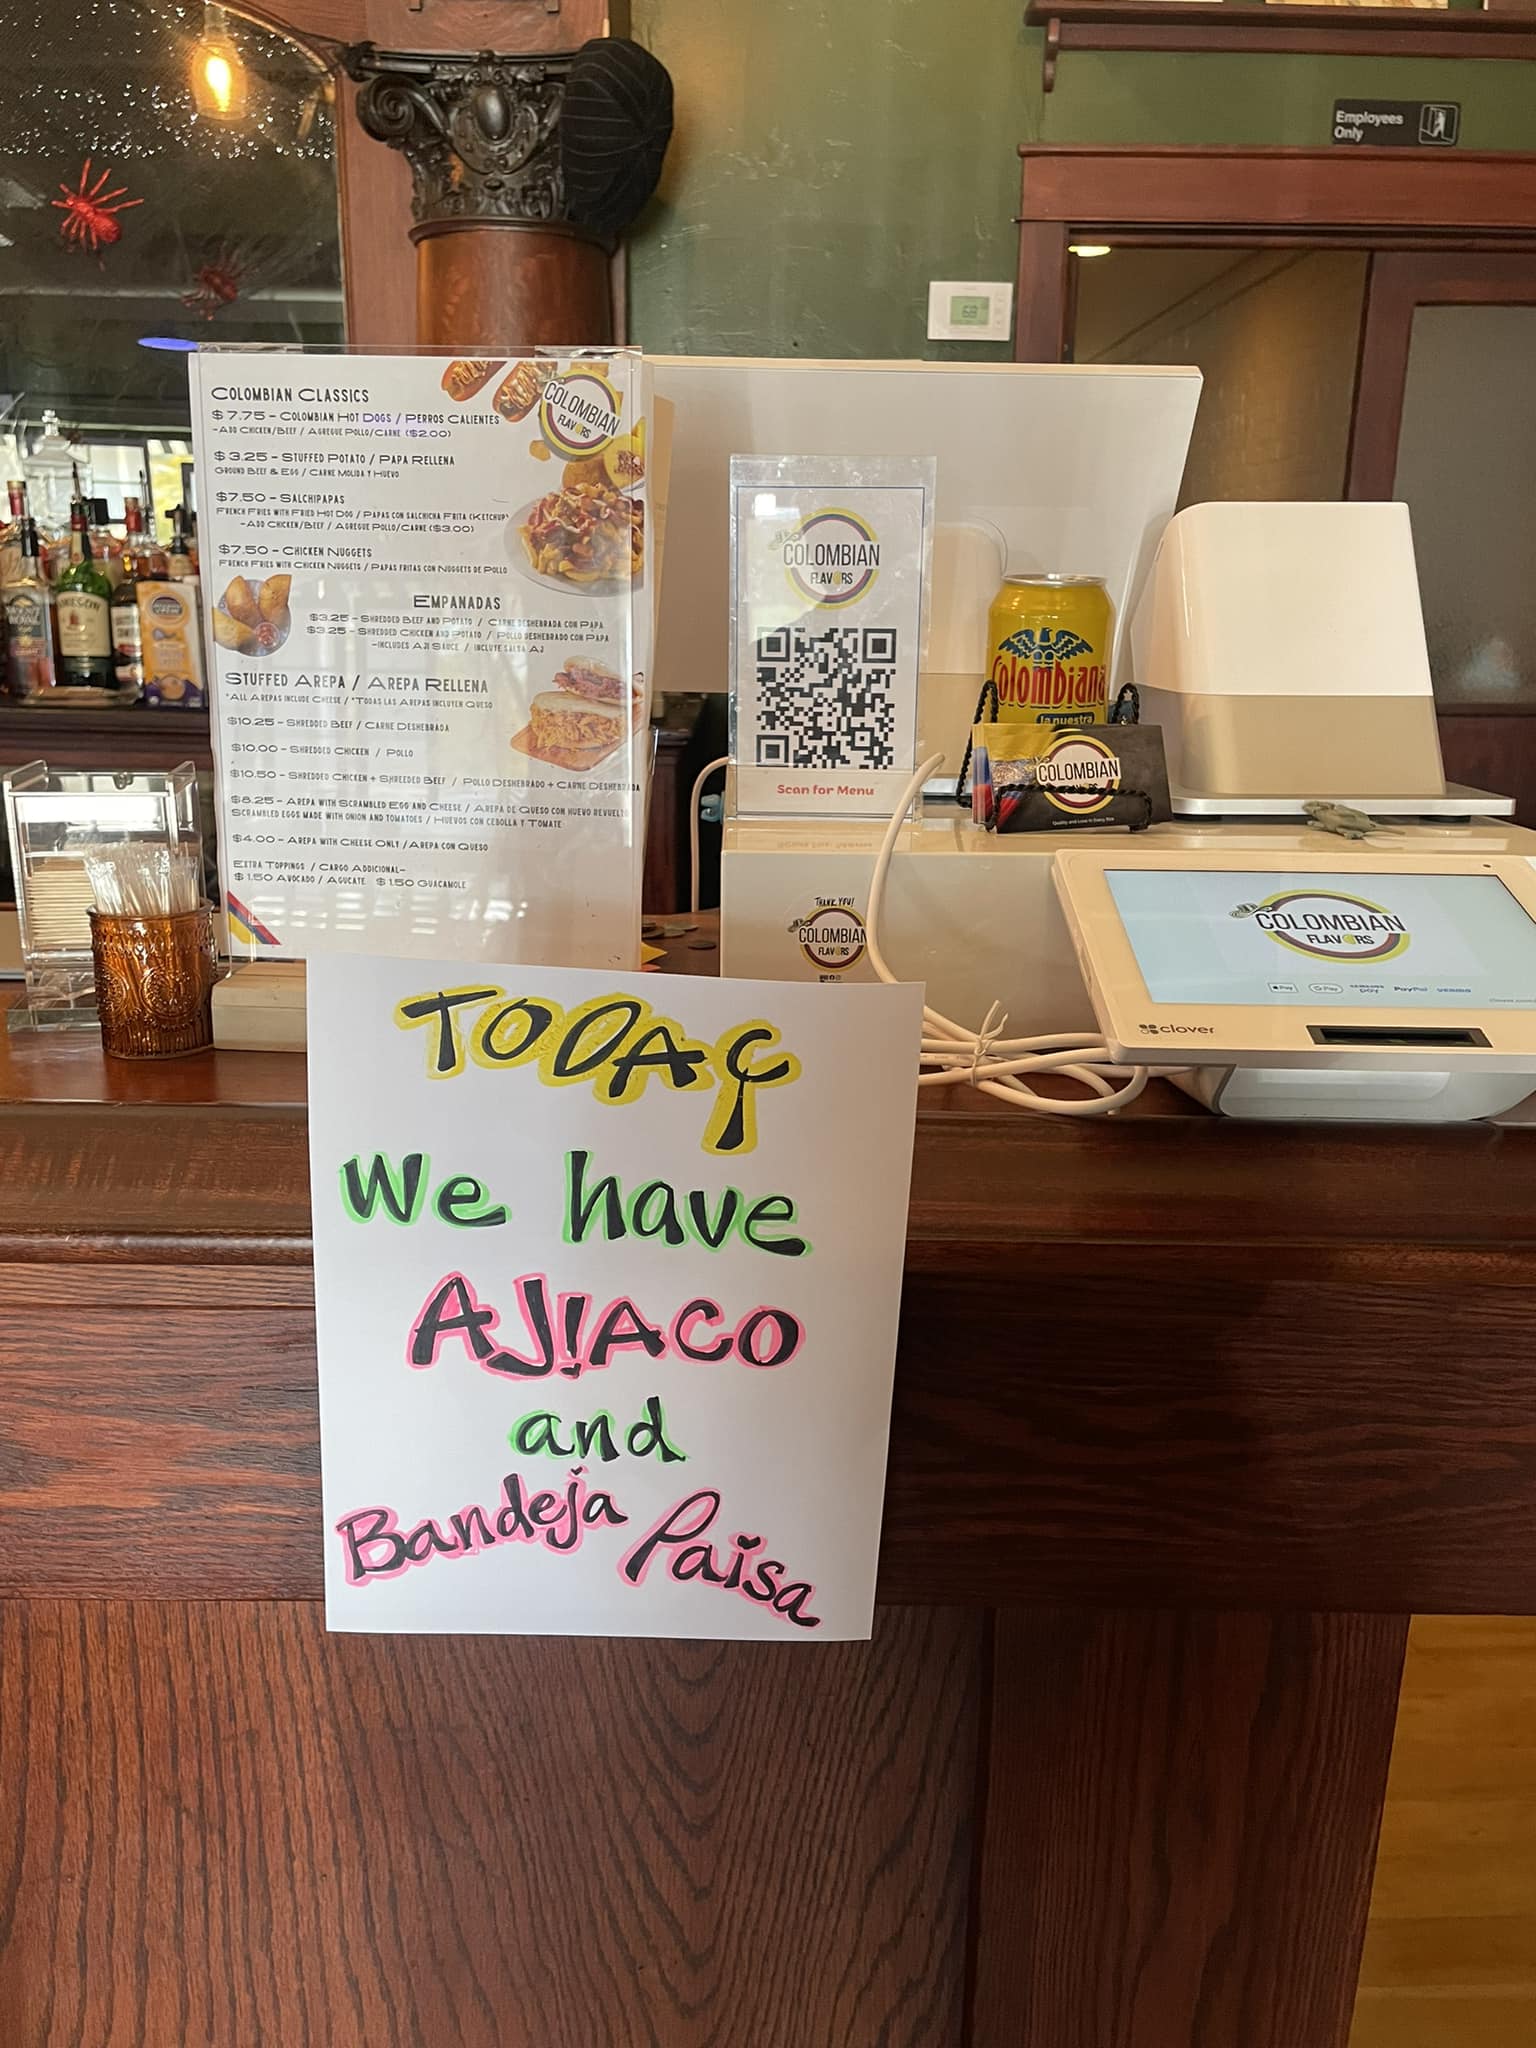 Employees
Only
68
COLOMBIAN CLASSICS
$7.75 - COLOMBIAN HOT DOGS / PERROS CALIENTES
-ADD CHICKEN/BEEF / AGREGUE POLLO/CARNE ($2.00)
$3.25 - STUFFED POTATO / PAPA RELLENA
GROUND BEEF & EGG / CARNE MOLIDA Y HUEVO
$7.50 - SALCHIPAPAS
FRENCH FRIES WITH FRIED HOT DOG / PAPAS CON SALCHICHA FRITA (KETCHUP)
-ADD CHICKEN/BEEF / AGREGUE POLLO/CARNE ($3.00)
$7.50 - CHICKEN NUGGETS
FRENCH FRIES WITH CHICKEN NUGGETS / PAPAS FRITAS CON NUGGETS DE POLLO
EMPANADAS
$3.25 - SHREDDED BEEF AND POTATO / CARNE DESHEBRADA CON PAPA
$3.25 - SHREDDED CHICKEN AND POTATO / POLLO DESHEBRADO CON PAPA
-INCLUDES AJI SAUCE / INCLUYE SALSA AJ
STUFFED AREPA / AREPA RELLENA
*ALL AREPAS INCLUDE CHEESE / *TODAS LAS AREPAS INCLUYEN QUESO
$10.25 - SHREDDED BEEF / CARNE DESHEBRADA
$10.00 - SHREDDED CHICKEN / POLLO
$10.50 - SHREDDED CHICKEN + SHREEDED BEEF / POLLO DESHEBRADO + CARNE DESHEBRADA
$8.25 - AREPA WITH SCRAMBLED EGG AND CHEESE / AREPA DE QUESO CON HUEVO REVUELTO
SCRAMBLED EGGS MADE WITH ONION AND TOMATOES / HUEVOS CON CEBOLLA Y TOMATE
$4.00 - AREPA WITH CHEESE ONLY / AREPA CON QUESO
EXTRA TOPPINGS / CARGO ADDICIONAL-
$1.50 AVOCADO / AGUCATE $1.50 GUACAMOLE
COLOMBIAN
FLAVORS
COLOMBIAN
FLAVORS
Scan for Menu
Colombiana
la nuestra
COLOMBIAN
Quality and Love in Every Bite
THANK YOU!
COLOMBIAN
FLAVORS
COLOMBIAN
FLAVORS
Pay
G Pay
SAMSUNG
pay
PayPal
venmo
clover
TODAY
We have
AJIACO
and
Bandeja Paisa